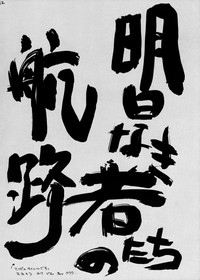 明日なき者たちの
航路